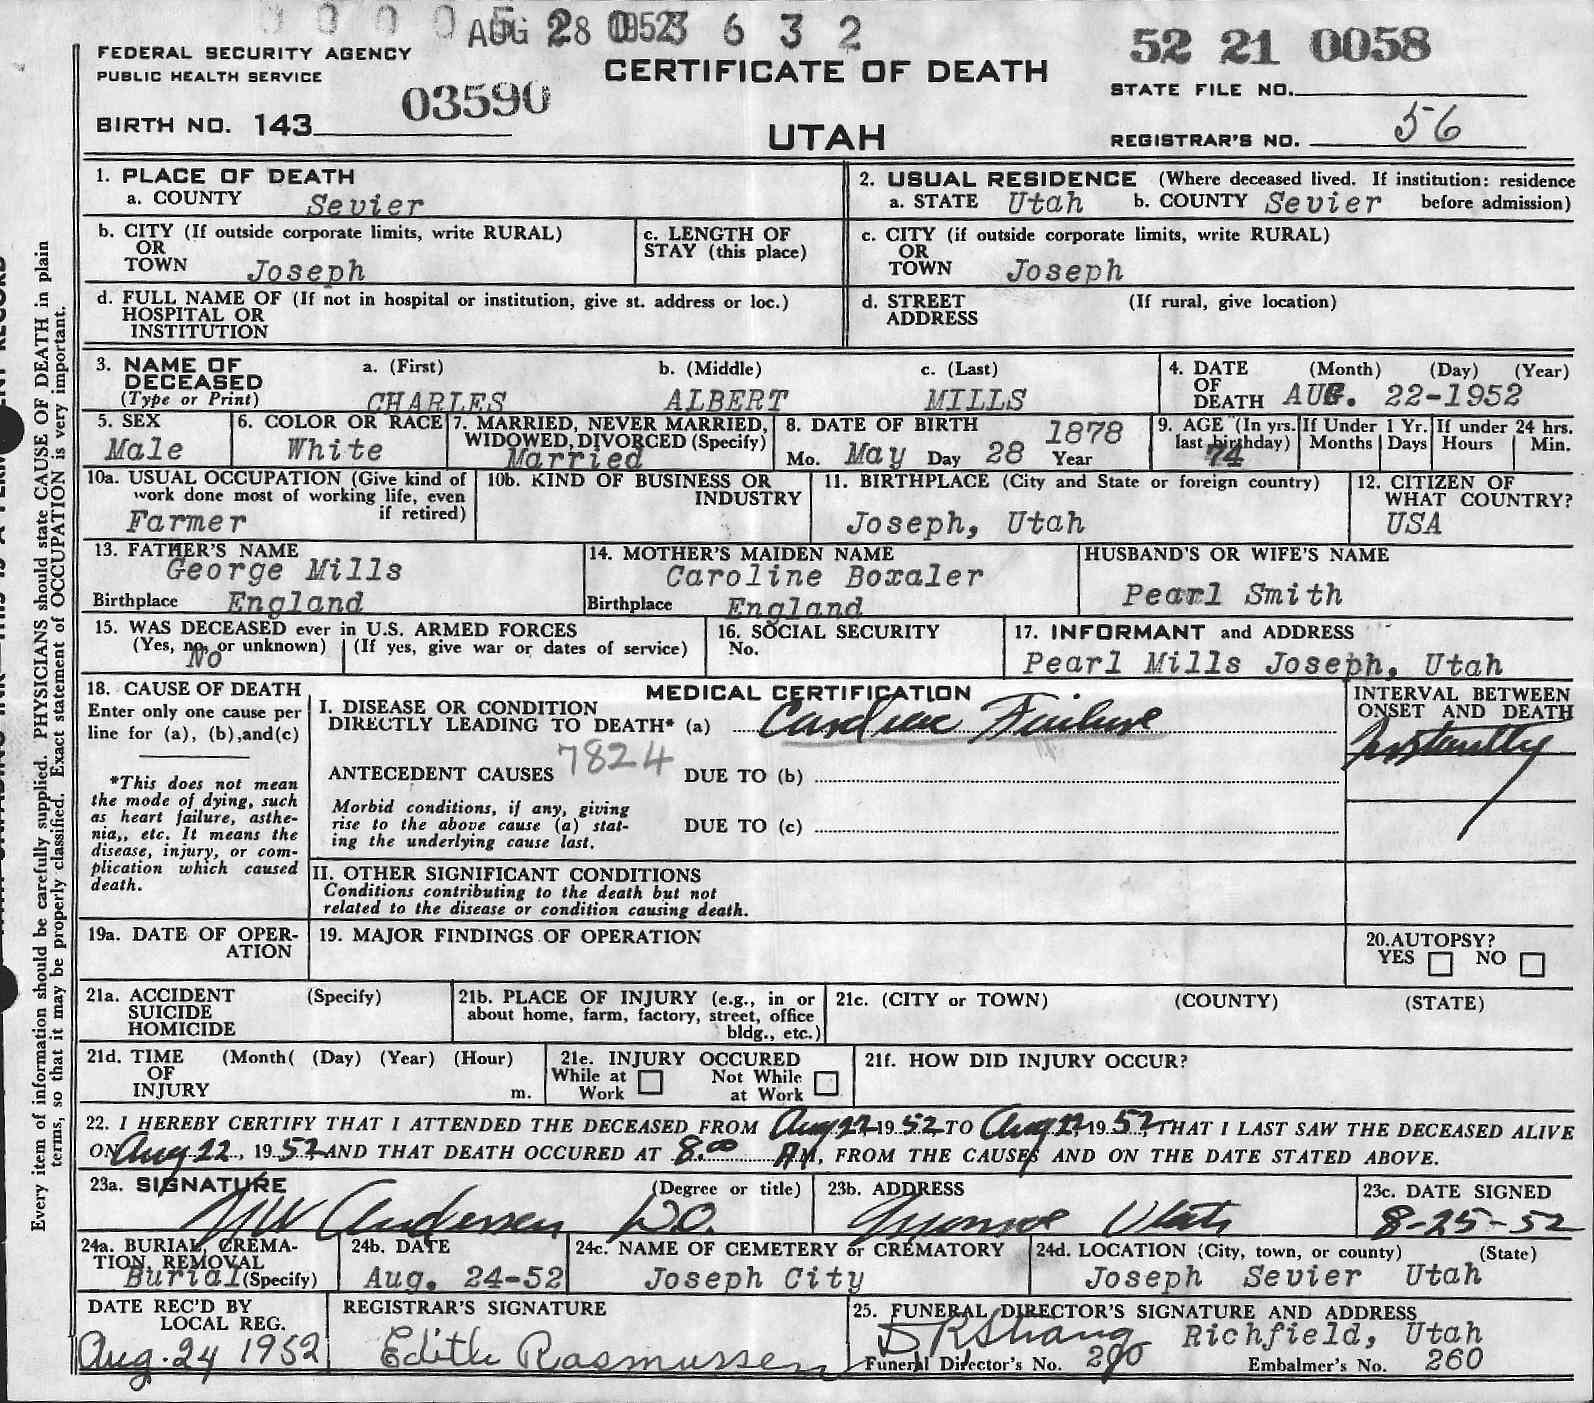 AUG 28 1952 3 6 3 2
52 21 0058
FEDERAL SECURITY AGENCY
PUBLIC HEALTH SERVICE
CERTIFICATE OF DEATH
STATE FILE NO.
03590
BIRTH NO. 143
UTAH
REGISTRAR'S NO. 56
1. PLACE OF DEATH
a. COUNTY Sevier
2. USUAL RESIDENCE (Where deceased lived. If institution: residence
a. STATE Utah b. COUNTY Sevier before admission)
b. CITY (If outside corporate limits, write RURAL)
OR
TOWN Joseph
c. LENGTH OF
STAY (this place)
c. CITY (if outside corporate limits, write RURAL)
OR
TOWN Joseph
d. FULL NAME OF (If not in hospital or institution, give st. address or loc.)
HOSPITAL OR
INSTITUTION
d. STREET (If rural, give location)
ADDRESS
3. NAME OF a. (First) b. (Middle) c. (Last)
DECEASED
(Type or Print) CHARLES ALBERT MILLS
4. DATE (Month) (Day) (Year)
OF
DEATH AUG. 22-1952
5. SEX
Male
6. COLOR OR RACE
White
7. MARRIED, NEVER MARRIED,
WIDOWED, DIVORCED (Specify)
Married
8. DATE OF BIRTH 1878
Mo. May Day 28 Year
9. AGE (In yrs.
last birthday)
74
If Under 1 Yr.
Months Days
If under 24 hrs.
Hours Min.
10a. USUAL OCCUPATION (Give kind of
work done most of working life, even
if retired)
Farmer
10b. KIND OF BUSINESS OR
INDUSTRY
11. BIRTHPLACE (City and State or foreign country)
Joseph, Utah
12. CITIZEN OF
WHAT COUNTRY?
USA
13. FATHER'S NAME
George Mills
Birthplace England
14. MOTHER'S MAIDEN NAME
Caroline Boxaler
Birthplace England
HUSBAND'S OR WIFE'S NAME
Pearl Smith
15. WAS DECEASED ever in U.S. ARMED FORCES
(Yes, no, or unknown) (If yes, give war or dates of service)
No
16. SOCIAL SECURITY
No.
17. INFORMANT and ADDRESS
Pearl Mills Joseph, Utah
18. CAUSE OF DEATH
Enter only one cause per
line for (a), (b),and(c)
*This does not mean
the mode of dying, such
as heart failure, asthe-
nia,, etc. It means the
disease, injury, or com-
plication which caused
death.
MEDICAL CERTIFICATION
I. DISEASE OR CONDITION
DIRECTLY LEADING TO DEATH* (a) Cardiac Failure
7824
ANTECEDENT CAUSES DUE TO (b)
Morbid conditions, if any, giving
rise to the above cause (a) stat-
ing the underlying cause last.
DUE TO (c)
INTERVAL BETWEEN
ONSET AND DEATH
Instantly
II. OTHER SIGNIFICANT CONDITIONS
Conditions contributing to the death but not
related to the disease or condition causing death.
19a. DATE OF OPER-
ATION
19. MAJOR FINDINGS OF OPERATION
20.AUTOPSY?
YES NO
21a. ACCIDENT (Specify)
SUICIDE
HOMICIDE
21b. PLACE OF INJURY (e.g., in or
about home, farm, factory, street, office
bldg., etc.)
21c. (CITY or TOWN) (COUNTY) (STATE)
21d. TIME (Month( (Day) (Year) (Hour)
OF
INJURY m.
21e. INJURY OCCURED
While at Not While
Work at Work
21f. HOW DID INJURY OCCUR?
22. I HEREBY CERTIFY THAT I ATTENDED THE DECEASED FROM Aug 22, 1952, TO Aug 22, 1952, THAT I LAST SAW THE DECEASED ALIVE
ON Aug 22, 1952, AND THAT DEATH OCCURED AT 8:00 A.M, FROM THE CAUSES AND ON THE DATE STATED ABOVE.
23a. SIGNATURE (Degree or title)
Andersen D.O.
23b. ADDRESS
Monroe Utah
23c. DATE SIGNED
8-25-52
24a. BURIAL, CREMA-
TION, REMOVAL
Burial (Specify)
24b. DATE
Aug. 24-52
24c. NAME OF CEMETERY or CREMATORY
Joseph City
24d. LOCATION (City, town, or county) (State)
Joseph Sevier Utah
DATE REC'D BY
LOCAL REG.
Aug. 24 1952
REGISTRAR'S SIGNATURE
Edith Rasmussen
25. FUNERAL DIRECTOR'S SIGNATURE AND ADDRESS
Richfield, Utah
Funeral Director's No. 290 Embalmer's No. 260
Every item of information should be carefully supplied. PHYSICIANS should state CAUSE OF DEATH in plain
terms, so that it may be properly classified. Exact statement of OCCUPATION is very important.